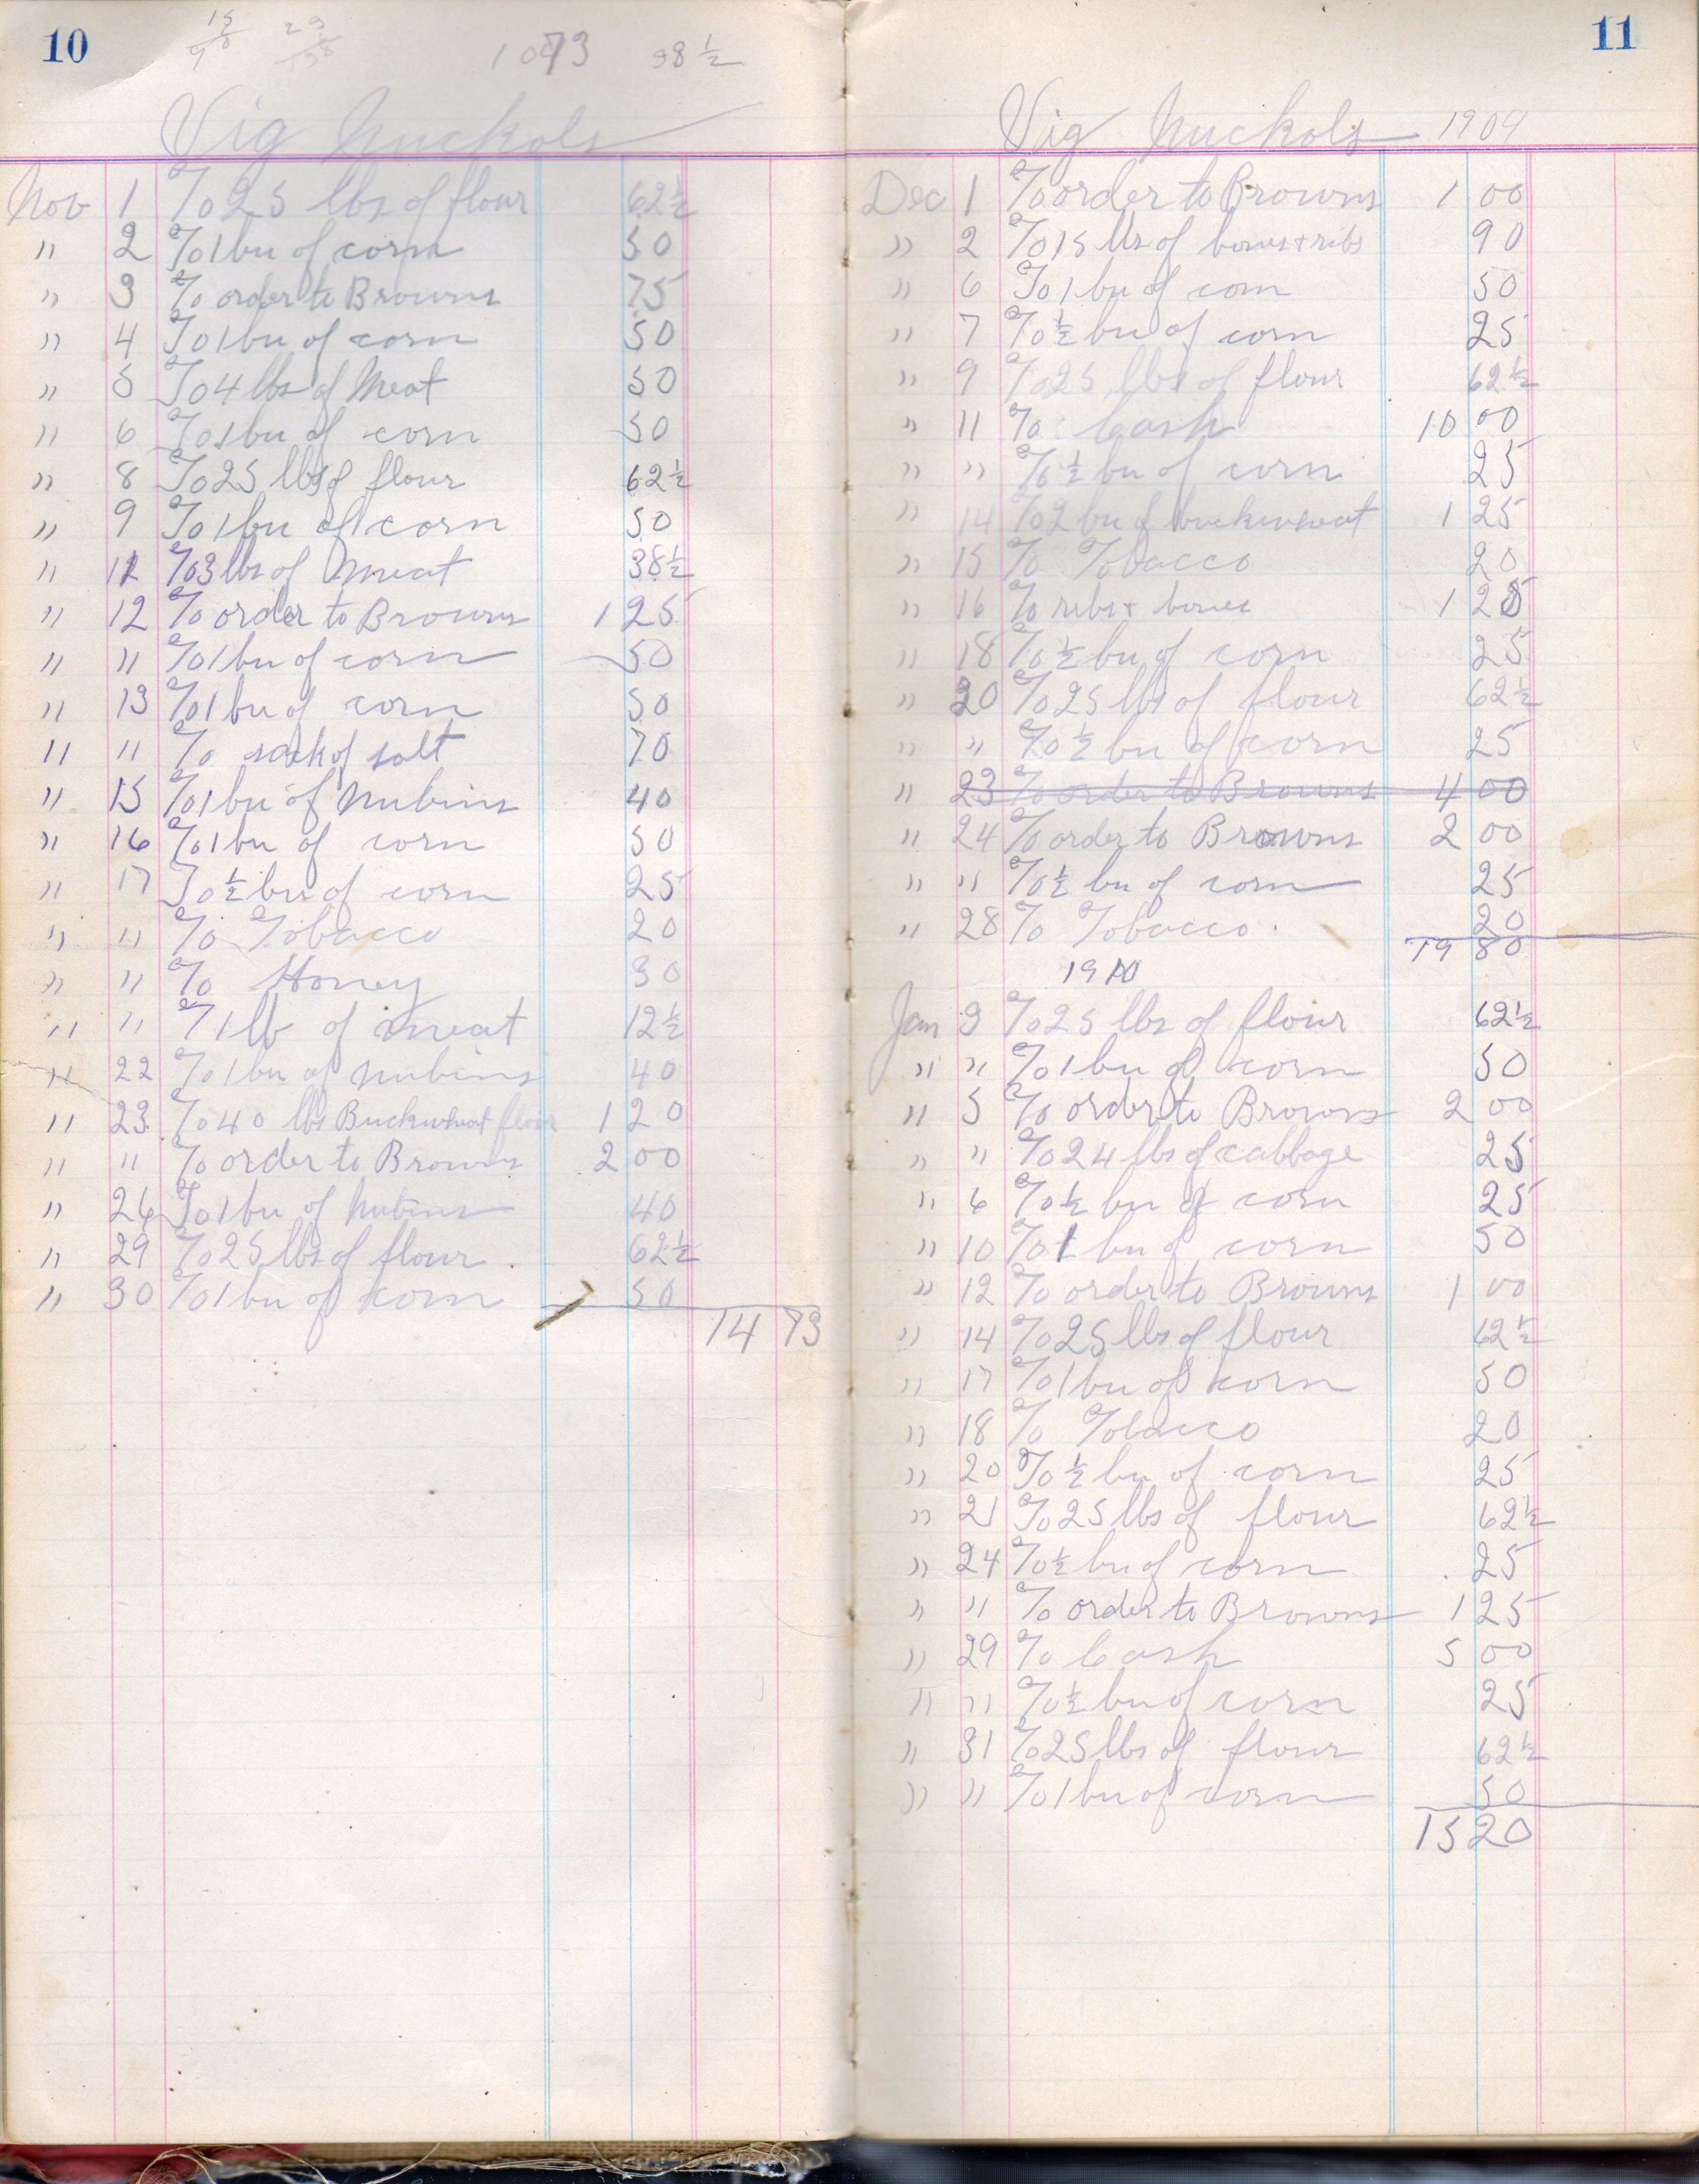 10
15
9
1073 98 1/2
Vig Nuckols
Nov 1 To 25 lbs of flour 62 1/2
" 2 To 1 bu of corn 50
" 3 To order to Browns 75
" 4 To 1 bu of corn 50
" 5 To 4 lbs of Meat 50
" 6 To 1 bu of corn 50
" 8 To 25 lbs of flour 62 1/2
" 9 To 1 bu of corn 50
" 11 To 3 lbs of meat 38 1/2
" 12 To order to Browns 1 25
" " To 1 bu of corn 50
" 13 To 1 bu of corn 50
" " To sack of salt 70
" 15 To 1 bu of Nubins 40
" 16 To 1 bu of corn 50
" 17 To 1/2 bu of corn 25
" " To Tobacco 20
" " To Honey 30
" " T 1 lb of meat 12 1/2
" 22 To 1 bu of Nubins 40
" 23 To 40 lbs Buckwheat flour 1 20
" " To order to Browns 2 00
" 26 To 1 bu of Nubins 40
" 29 To 25 lbs of flour 62 1/2
" 30 To 1 bu of corn 50
14 73
11
Vig Nuckols 1909
Dec 1 To order to Browns 1 00
" 2 To 15 lbs of bones + ribs 90
" 6 To 1 bu of corn 50
" 7 To 1/2 bu of corn 25
" 9 To 25 lbs of flour 62 1/2
" 11 To Cash 10 00
" " To 1/2 bu of corn 25
" 14 To 2 bu of buckwheat 1 25
" 15 To Tobacco 20
" 16 To ribs + bones 1 25
" 18 To 1/2 bu of corn 25
" 20 To 25 lbs of flour 62 1/2
" " To 1/2 bu of corn 25
" 23 To order to Browns 4 00
" 24 To order to Browns 2 00
" " To 1/2 bu of corn 25
" 28 To Tobacco 20
19 80
1910
Jan 3 To 25 lbs of flour 62 1/2
" " To 1 bu of corn 50
" 5 To order to Browns 2 00
" " To 24 lbs of cabbage 25
" 6 To 1/2 bu of corn 25
" 10 To 1 bu of corn 50
" 12 To order to Browns 1 00
" 14 To 25 lbs of flour 62 1/2
" 17 To 1 bu of corn 50
" 18 To Tobacco 20
" 20 To 1/2 bu of corn 25
" 21 To 25 lbs of flour 62 1/2
" 24 To 1/2 bu of corn 25
" " To order to Browns 1 25
" 29 To Cash 5 00
" " To 1/2 bu of corn 25
" 31 To 25 lbs of flour 62 1/2
" " To 1 bu of corn 50
15 20